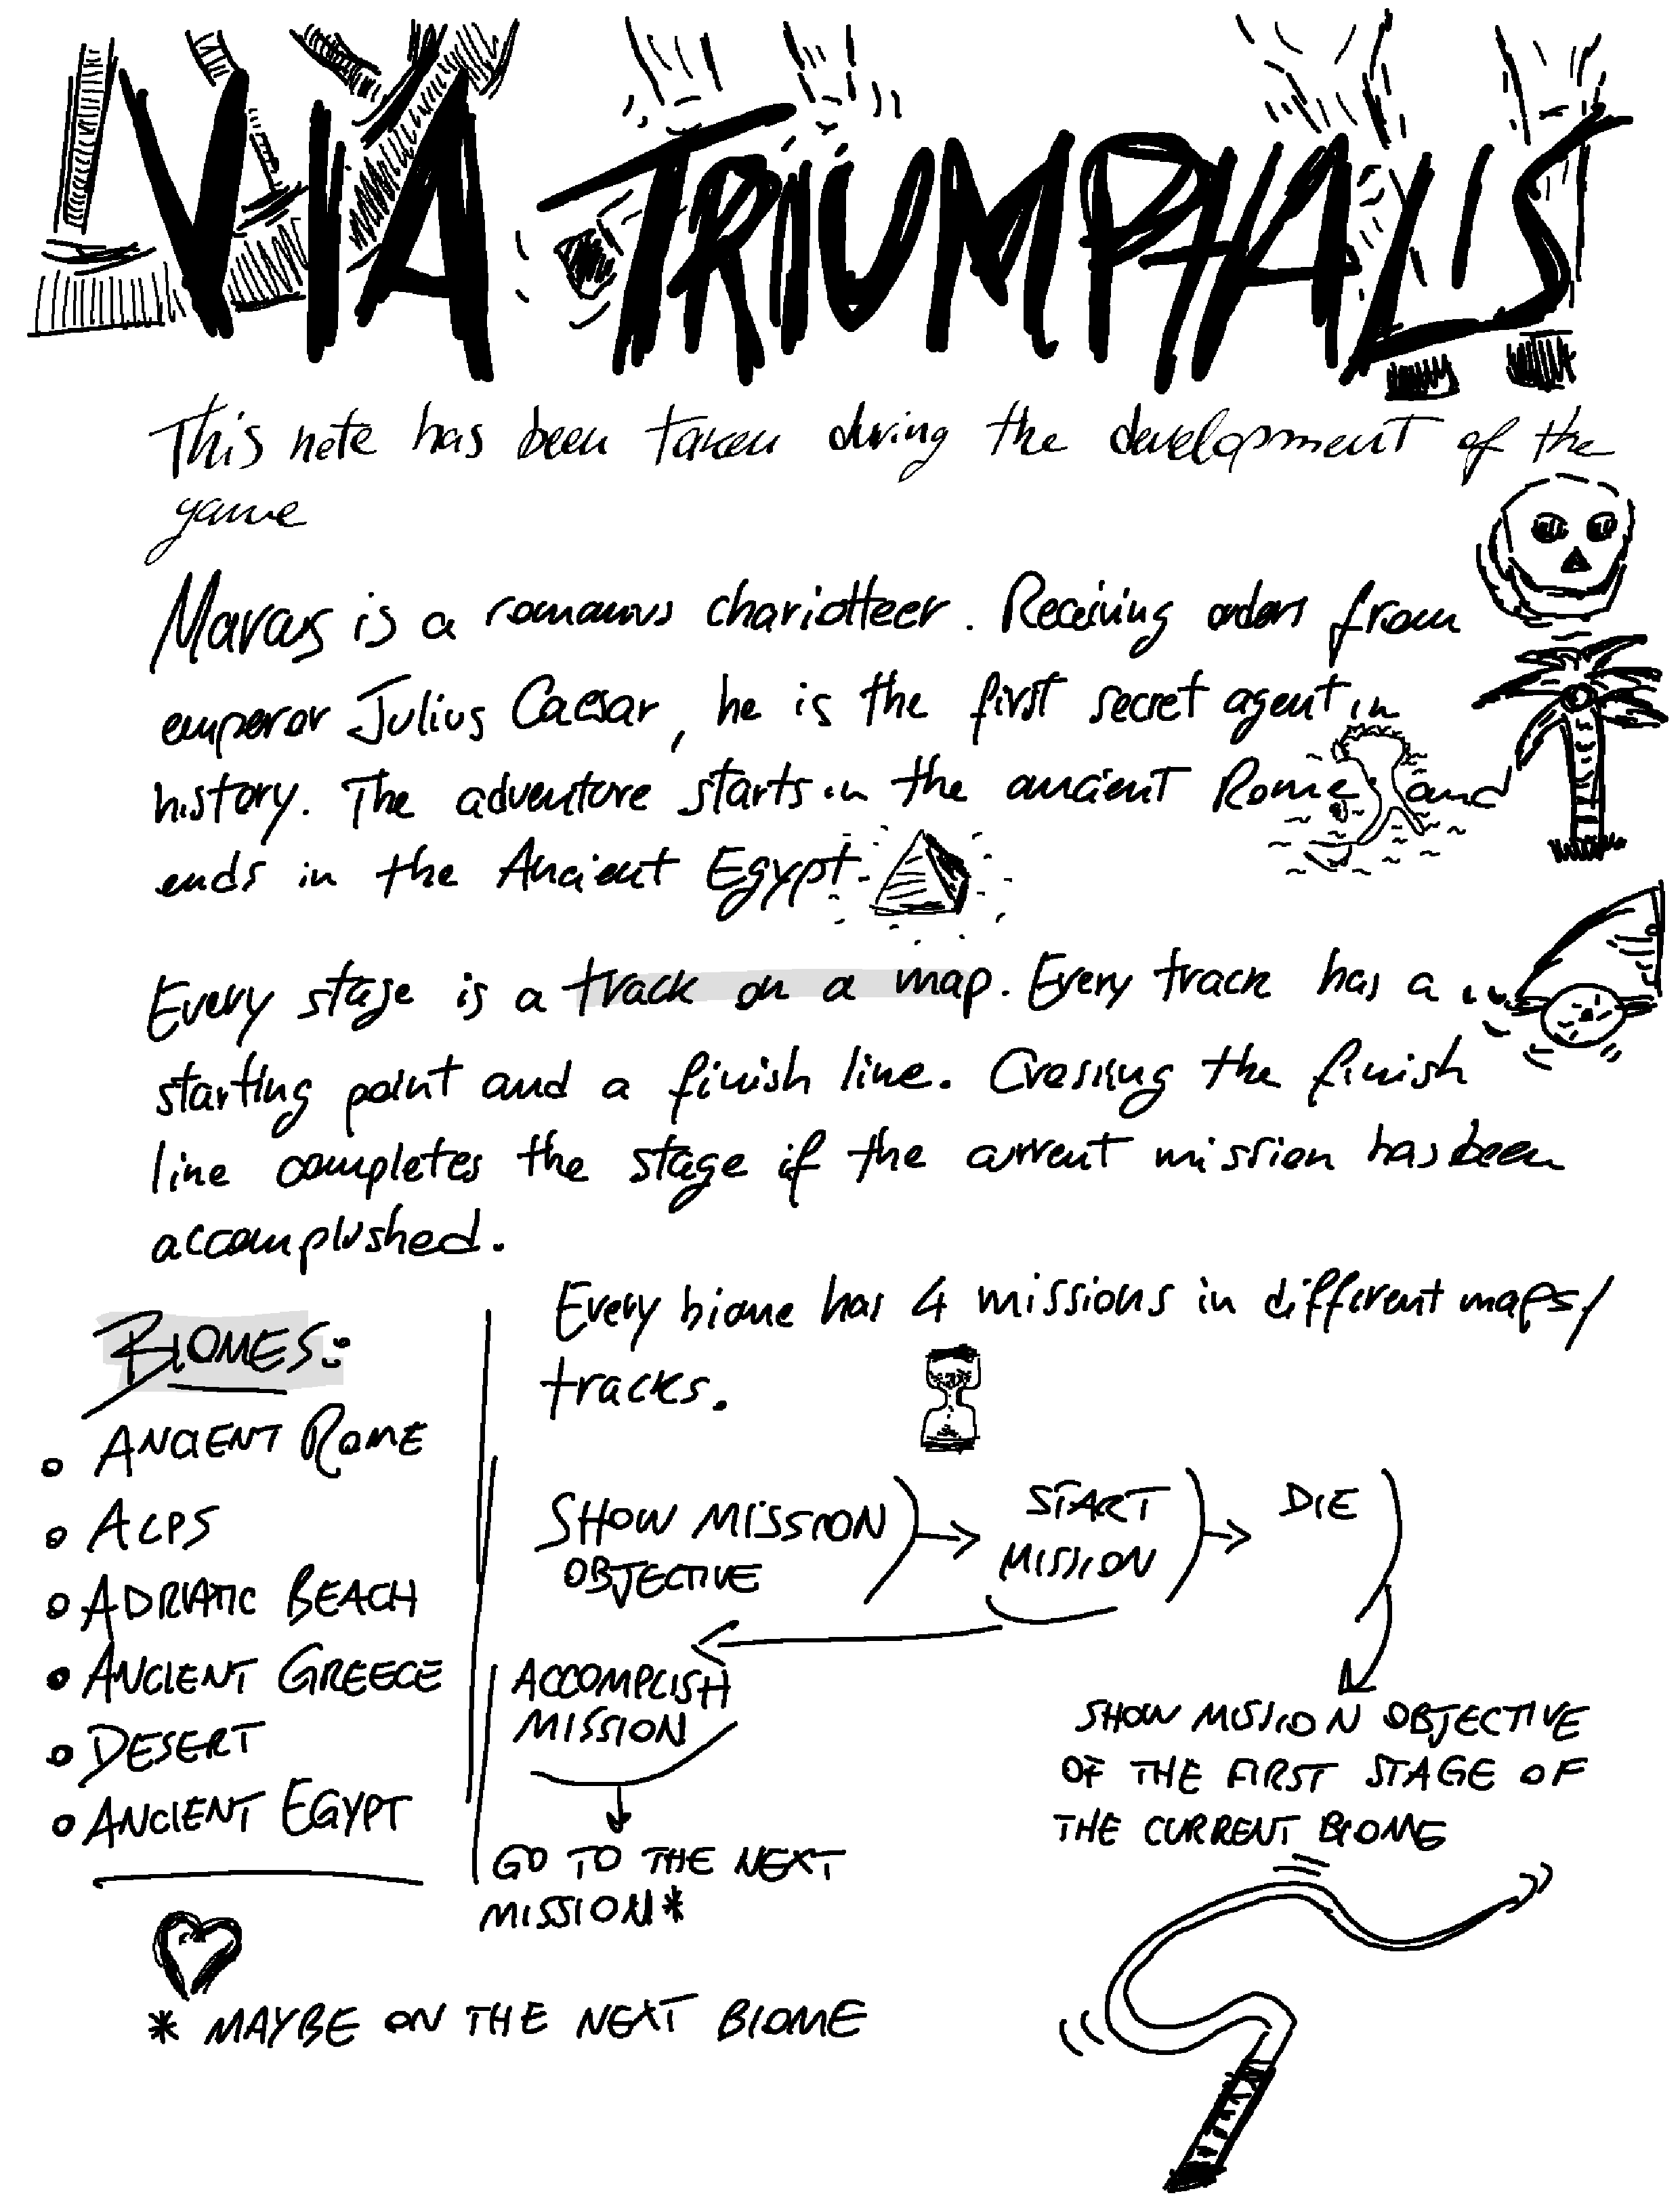 VIA TRIUMPHALIS
This note has been taken during the development of the
game
Marcus is a romanus chariotteer. Receiving orders from
emperor Julius Caesar, he is the first secret agent in
history. The adventure starts in the ancient Rome and
ends in the Ancient Egypt.
Every stage is a track on a map. Every track has a
starting point and a finish line. Crossing the finish
line completes the stage if the current mission has been
accomplished.
Every biome has 4 missions in different maps/
tracks.
BIOMES:
ANCIENT ROME
ALPS
ADRIATIC BEACH
ANCIENT GREECE
DESERT
ANCIENT EGYPT
SHOW MISSION
OBJECTIVE
START
MISSION
DIE
ACCOMPLISH
MISSION
GO TO THE NEXT
MISSION*
SHOW MISSION OBJECTIVE
OF THE FIRST STAGE OF
THE CURRENT BIOME
* MAYBE ON THE NEXT BIOME